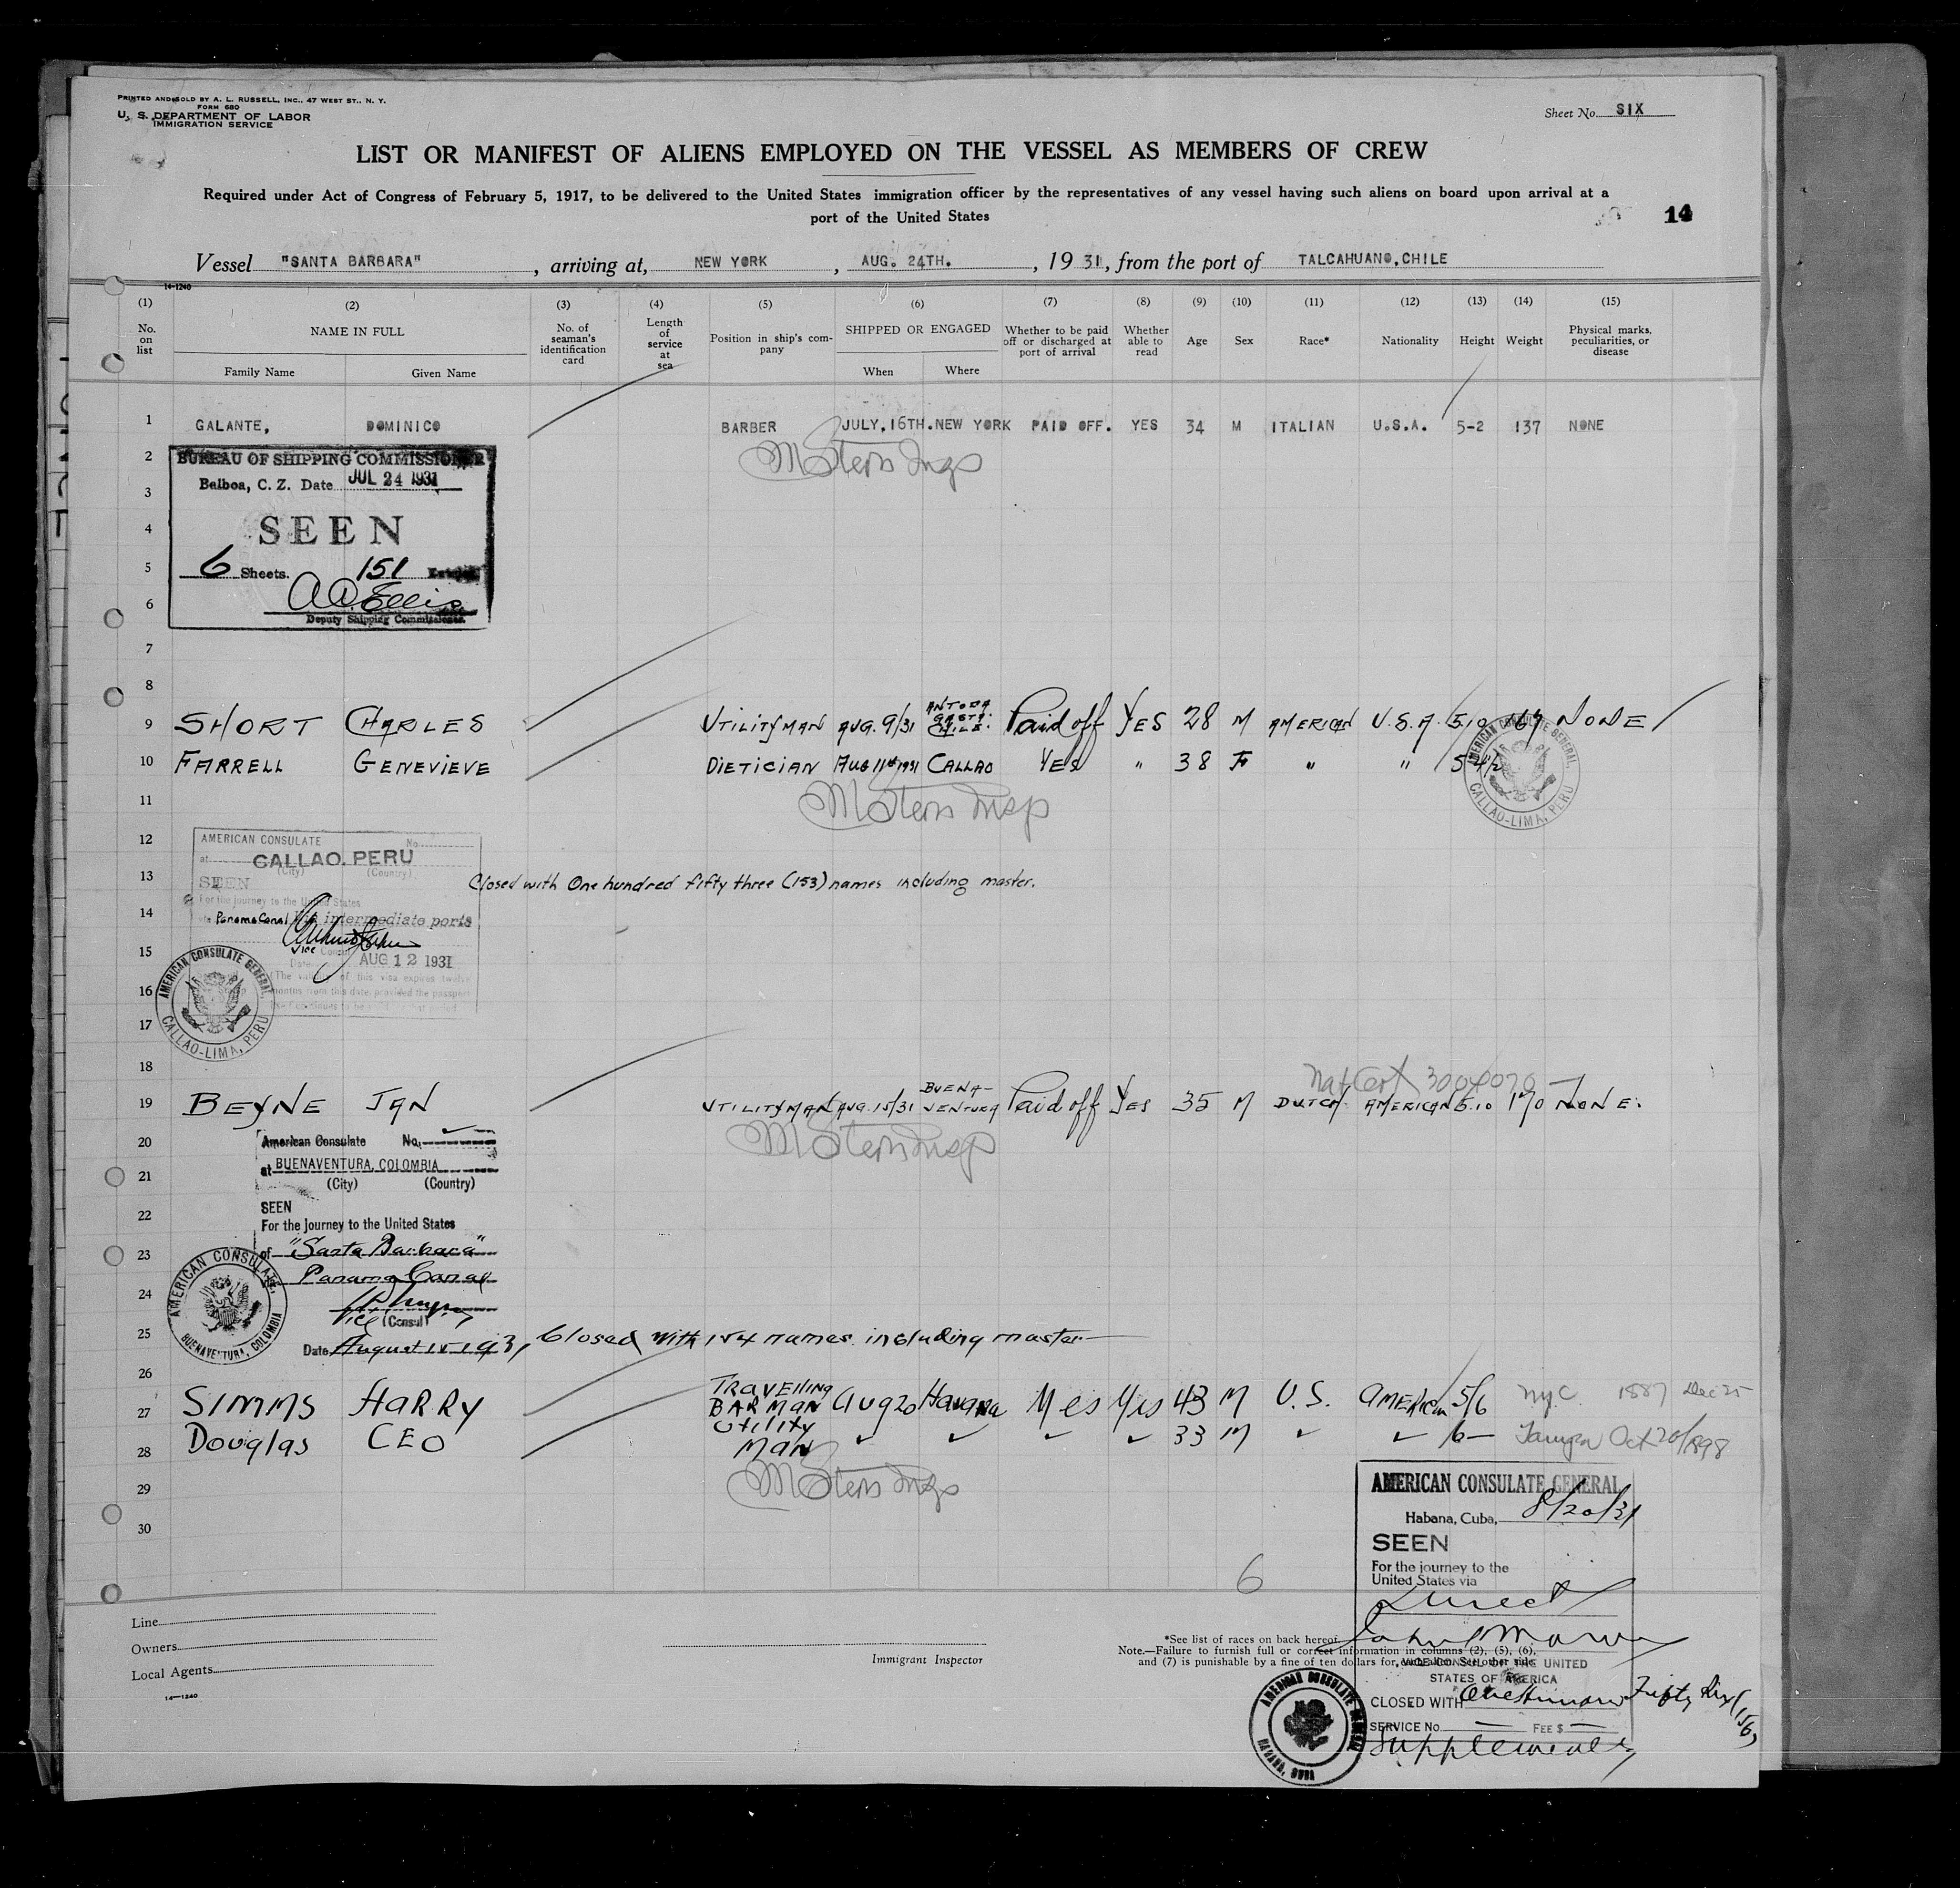 PRINTED AND SOLD BY A. L. RUSSELL, INC., 47 WEST ST., N. Y.
FORM 680
U. S. DEPARTMENT OF LABOR
IMMIGRATION SERVICE
Sheet No. SIX
LIST OR MANIFEST OF ALIENS EMPLOYED ON THE VESSEL AS MEMBERS OF CREW
Required under Act of Congress of February 5, 1917, to be delivered to the United States immigration officer by the representatives of any vessel having such aliens on board upon arrival at a
port of the United States
14
Vessel "SANTA BARBARA", arriving at, NEW YORK, AUG. 24TH., 1931, from the port of TALCAHUANO, CHILE
14-1240
(1) (2) (3) (4) (5) (6) (7) (8) (9) (10) (11) (12) (13) (14) (15)
No. on list
NAME IN FULL
Family Name Given Name
No. of seaman's identification card
Length of service at sea
Position in ship's company
SHIPPED OR ENGAGED
When Where
Whether to be paid off or discharged at port of arrival
Whether able to read
Age
Sex
Race*
Nationality
Height
Weight
Physical marks, peculiarities, or disease
1 GALANTE, DOMINICO BARBER JULY, 16TH. NEW YORK PAID OFF. YES 34 M ITALIAN U.S.A. 5-2 137 NONE
2 BUREAU OF SHIPPING COMMISSIONER
Balboa, C. Z. Date JUL 24 1931
3
4 SEEN
5 6 Sheets. 151
6 Deputy Shipping Commissioner.
7
8
9 SHORT CHARLES UTILITYMAN AUG. 9/31 ANTOFAGASTA: CHILE: Paid off YES 28 M AMERICAN U.S.A. 5/10 NONE
10 FARRELL GENEVIEVE DIETICIAN AUG 11th 1931 CALLAO YES " 38 F " " 5 4 1/2
AMERICAN CONSULATE GENERAL, CALLAO-LIMA, PERU
11
12 AMERICAN CONSULATE No
at CALLAO. PERU
(City) (Country)
13 SEEN
Closed with One hundred fifty three (153) names including master.
For the journey to the United States
14 via Panama Canal intermediate ports
15 Vice Consul
Date AUG 12 1931
16 (The validity of this visa expires twelve
months from this date, provided the passport
AMERICAN CONSULATE GENERAL, CALLAO-LIMA, PERU
17
18
Nat Cert
19 BEYNE JAN UTILITYMAN AUG. 15/31 BUENA-VENTURA Paid off Yes 35 M DUTCH AMERICAN 5.10 170 NONE:
20 American Consulate No.
21 at BUENAVENTURA, COLOMBIA
(City) (Country)
22 SEEN
For the journey to the United States
23 of "Santa Barbara"
Panama Canal
24 Vice Consul
AMERICAN CONSULATE, BUENAVENTURA, COLOMBIA
25 Date August 15 1931 Closed with 154 names including master
26
27 SIMMS HARRY TRAVELLING BARMAN Aug 20 Havana Yes Yes 43 M U.S. AMERICAN 5/6 N.Y.C. 1887 Dec 25
28 Douglas CEO Utility MAN ✓ ✓ ✓ ✓ 33 M ✓ ✓ 6— Tampa Oct 20/1898
29
30
AMERICAN CONSULATE GENERAL
Habana, Cuba, 8/20/31
SEEN
For the journey to the
United States via
Direct
6
VICE CONSUL OF THE UNITED
STATES OF AMERICA
CLOSED WITH One Hundred Fifty Six (156)
SERVICE No. — FEE $ —
Supplemental
AMERICAN CONSULATE GENERAL HABANA, CUBA
Line
Owners
Local Agents
14—1240
Immigrant Inspector
*See list of races on back hereof.
Note.—Failure to furnish full or correct information in columns (2), (5), (6),
and (7) is punishable by a fine of ten dollars for each alien. See other side.